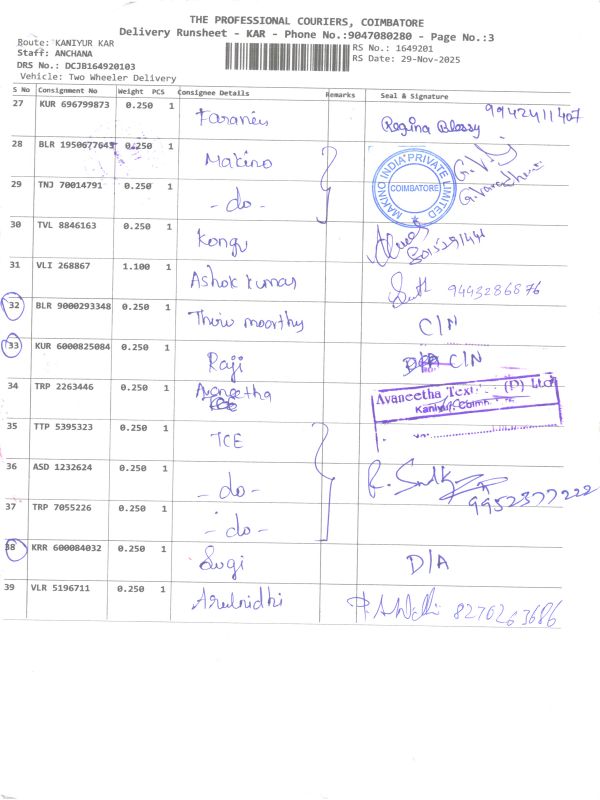 THE PROFESSIONAL COURIERS, COIMBATORE
Delivery Runsheet - KAR - Phone No.:9047080280 - Page No.:3
Route: KANIYUR KAR
Staff: ANCHANA
DRS No.: DCJB164920103
Vehicle: Two Wheeler Delivery
RS No.: 1649201
RS Date: 29-Nov-2025
S No Consignment No Weight PCS Consignee Details Remarks Seal & Signature
27 KUR 696799873 0.250 1 Faraneis Regina Blessy 9942411407
28 BLR 1950677645 0.250 Makino
MAKINO INDIA PRIVATE LIMITED
COIMBATORE
29 TNJ 70014791 0.250 1 - do -
30 TVL 8846163 0.250 1 Kongu 8015291441
31 VLI 268867 1.100 1 Ashok kumar 9443286876
32 BLR 9000293348 0.250 1 Thiru moorthy C/N
33 KUR 6000825084 0.250 1 Raji C/N
34 TRP 2263446 0.250 1 Avaneetha
Avaneetha Text... (P) Ltd
35 TTP 5395323 0.250 1 TCE
36 ASD 1232624 0.250 1 - do - 9952377222
37 TRP 7055226 0.250 1 - do -
38 KRR 600084032 0.250 1 Sugi D/A
39 VLR 5196711 0.250 1 Arulnidhi 8270263686